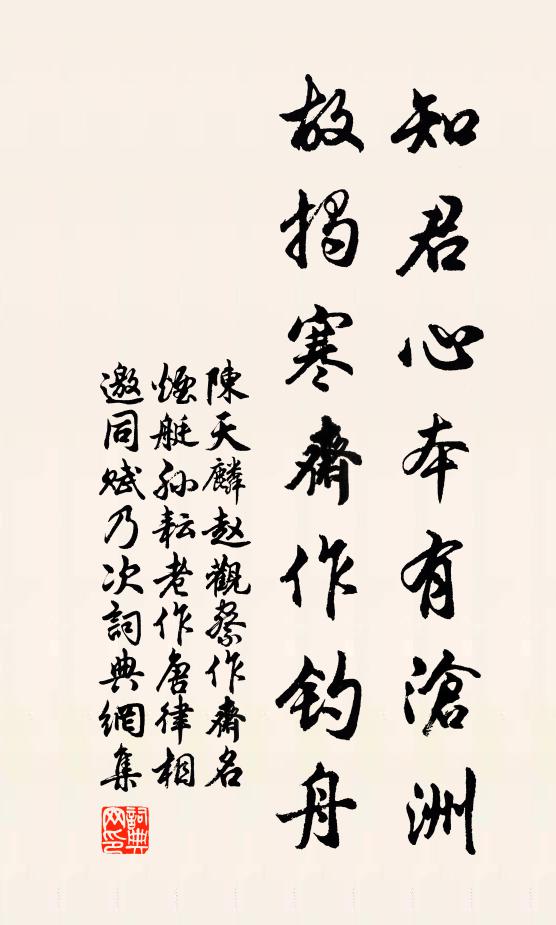 知君心本有滄洲
故揭寒齋作釣舟
陳天麟赵觀察作齋名
煙艇孙耘老作唐律相
邀同赋乃次詞典網集
詞典網印